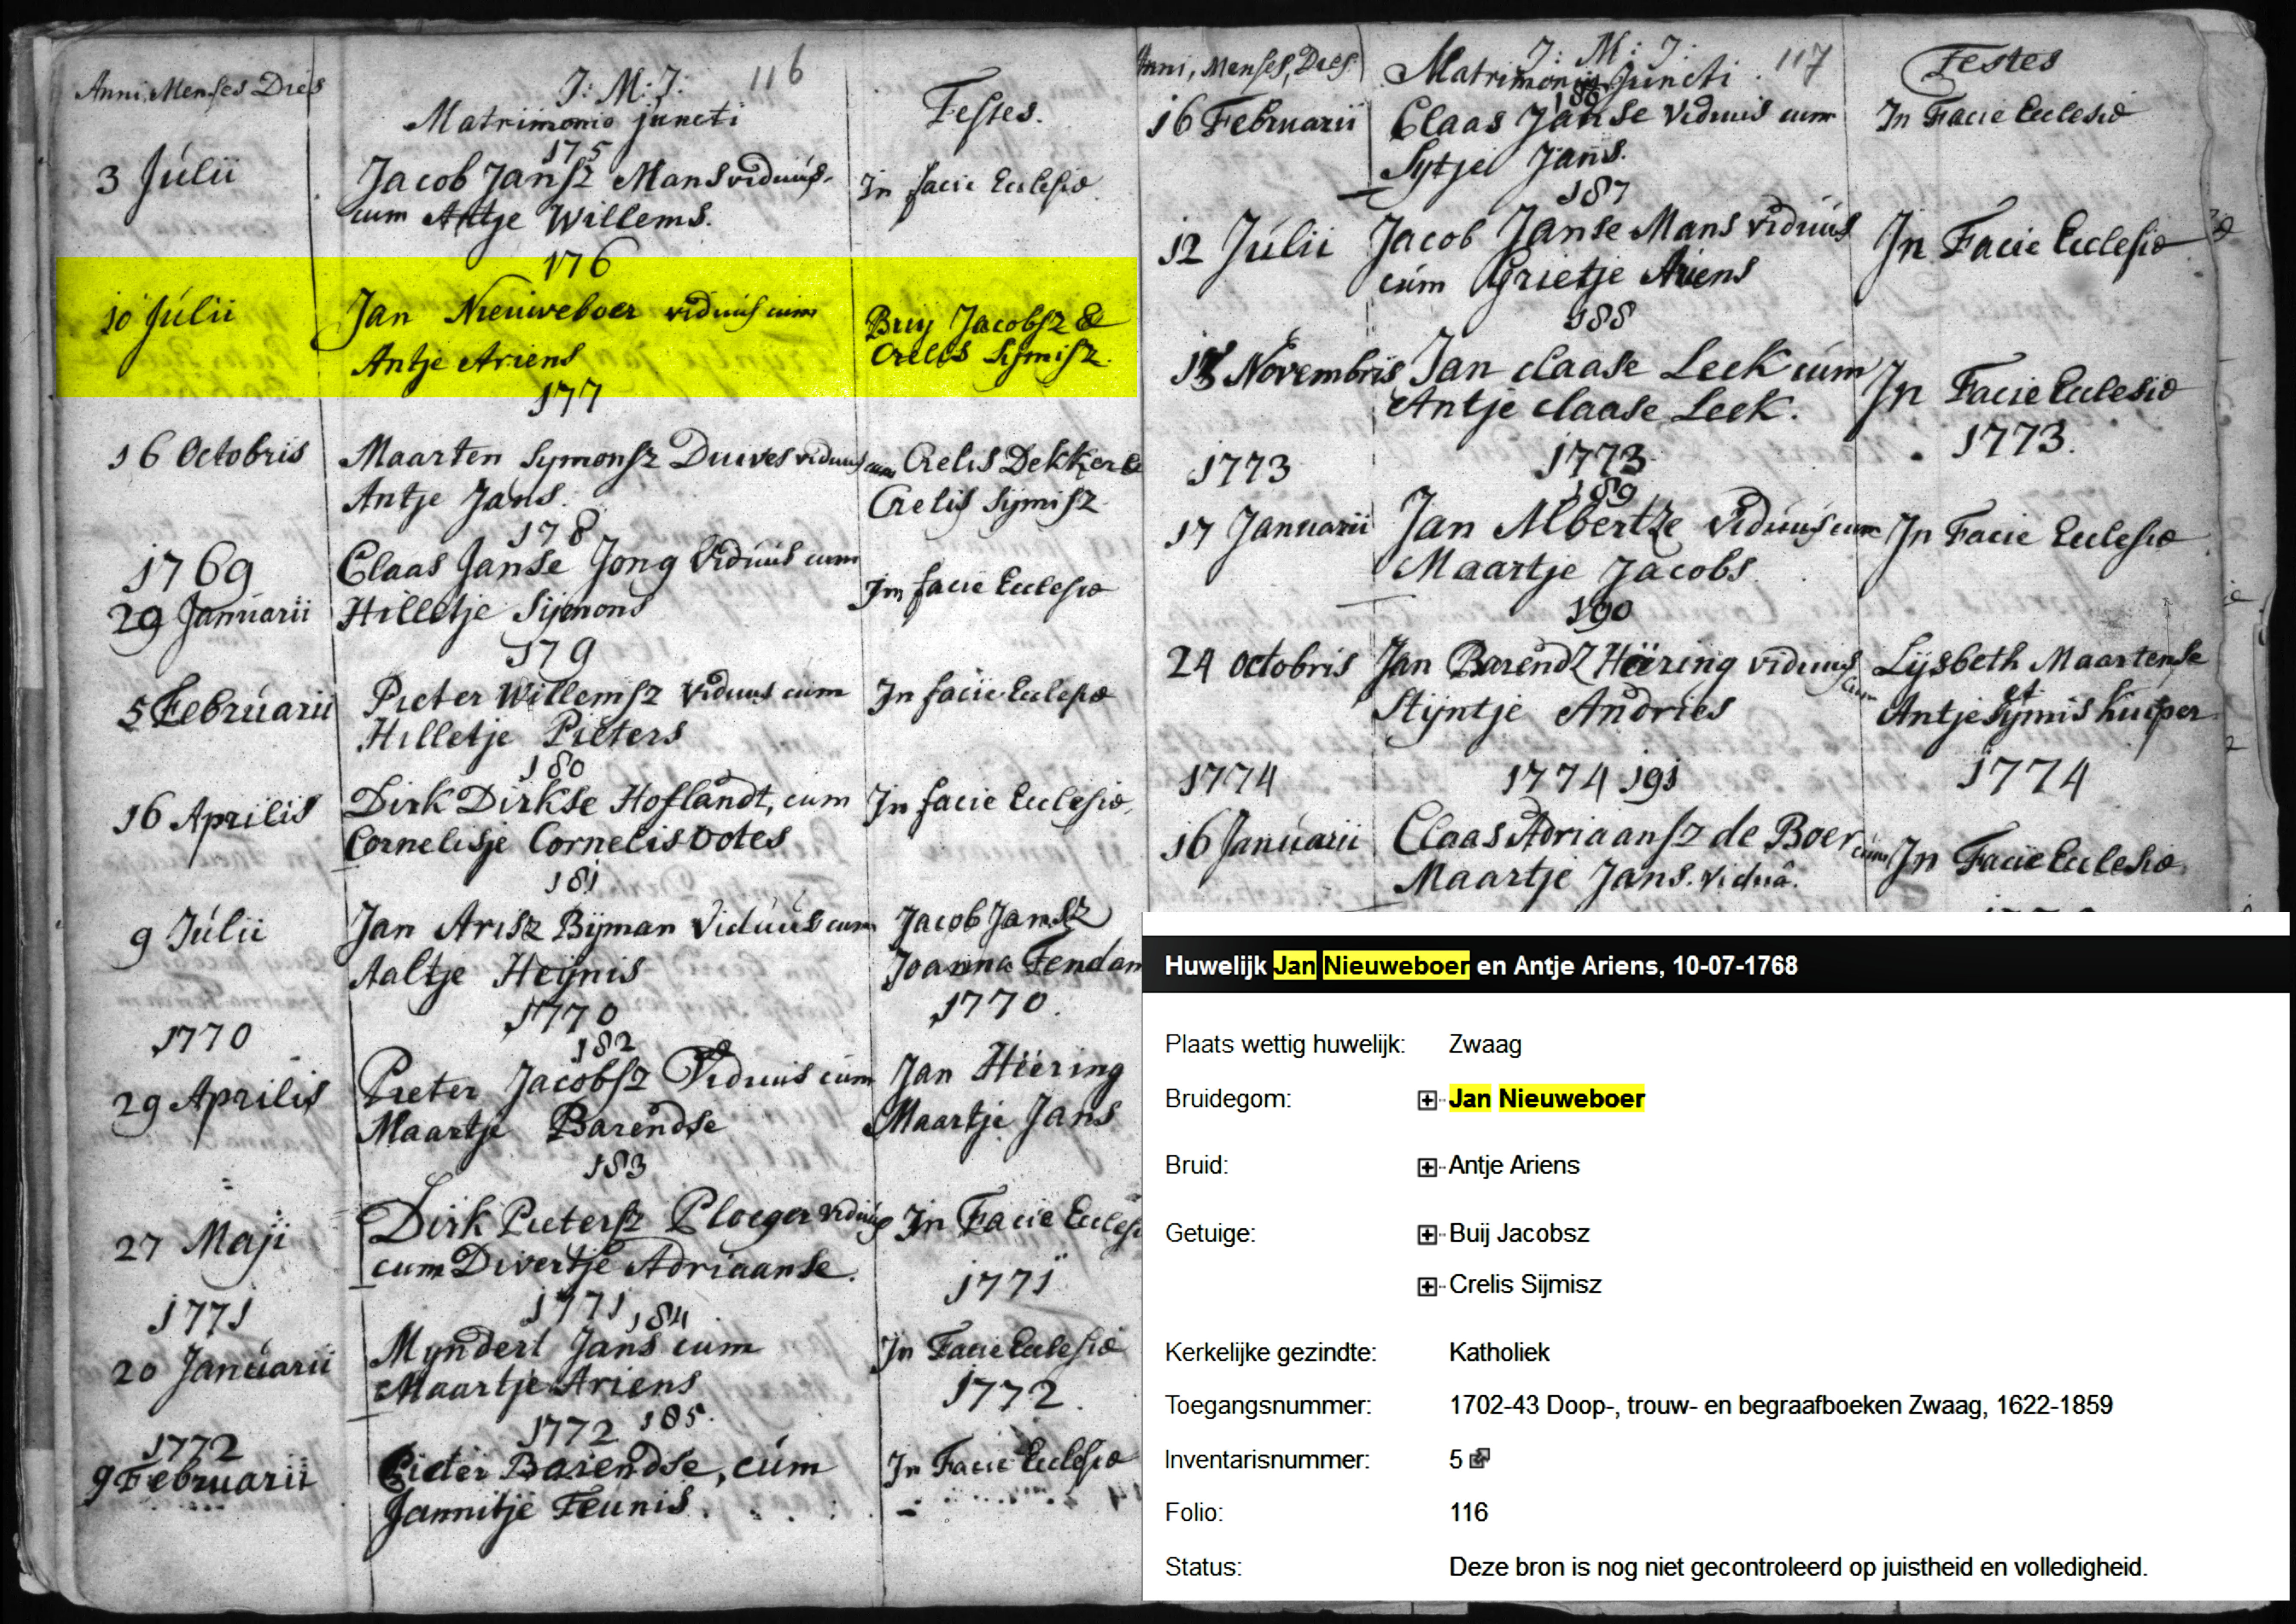 Anni, Menses Dies
J: M: J:
116
Matrimonio juncti
Testes.
175
3 Júlii
Jacob Jansz Mans viduús
In facie Ecclesiæ
cum Antje Willems.
176
10 Júlii
Jan Nieuweboer viduus cum
Buij Jacobsz &
Antje Ariens
Crelis Sijmisz.
177
16 Octobris
Maarten Symonsz Duives viduus cum
Crelis Dekker &
Antje Jans.
Crelis Sijmisz
178
1769
Claas Janse Jong Viduús cum
In facie Ecclesiæ
29 Januarii
Hilletje Sijmons
179
5 Februarii
Pieter Willemsz Viduus cum
In facie Ecclesiæ
Hilletje Pieters
180
16 Aprilis
Dirk Dirkse Hoflandt, cum
In facie Ecclesiæ
Cornelisje Cornelis Ootes
181
9 Júlii
Jan Arisz Bijman Viduús cum
Jacob Jansz
Aaltje Heijnis
Joanna Tendam
1770
1770
1770.
182
29 Aprilis
Pieter Jacobsz Viduus cum
Jan Heering
Maartje Barendse
Maartje Jans
183
27 Maji
Dirk Pietersz Ploeger viduus
In Facie Eccles
cum Divertje Adriaanse.
1771
1771
1771 184
20 Januarii
Myndert Jans cum
In Facie Ecclesiæ
Maartje Ariens
1772
1772 185.
1772.
9 Februarii
Pieter Barendse, cúm
In Facie Ecclesiæ
Jannitje Teunis.
Anni, Menses, Dies
J: M: J:
117
Matrimonio Juncti
Testes
186
16 Februarii
Claas Janse Viduus cum
In Facie Ecclesiæ
Sytje Jans.
187
12 Júlii
Jacob Janse Mans Viduus
In Facie Ecclesiæ
cúm Grietje Ariens
188
Novembris
Jan Claase Leek cúm
In Facie Ecclesiæ
Antje Claase Leek.
1773
1773
1773.
189
17 Januarii
Jan Albertze Viduús cum
In Facie Ecclesiæ
Maartje Jacobs
190
24 Octobris
Jan Barendz Heering viduus cum
Lijsbeth Maartense
et
Stijntje Andries
Antje Sijmis Kuiper
1774
1774 191
1774
16 Januarii
Claas Adriaansz de Boer cum
In Facie Ecclesiæ
Maartje Jans. viduâ.
Huwelijk Jan Nieuweboer en Antje Ariens, 10-07-1768
Plaats wettig huwelijk: Zwaag
Bruidegom: Jan Nieuweboer
Bruid: Antje Ariens
Getuige: Buij Jacobsz
Crelis Sijmisz
Kerkelijke gezindte: Katholiek
Toegangsnummer: 1702-43 Doop-, trouw- en begraafboeken Zwaag, 1622-1859
Inventarisnummer: 5
Folio: 116
Status: Deze bron is nog niet gecontroleerd op juistheid en volledigheid.